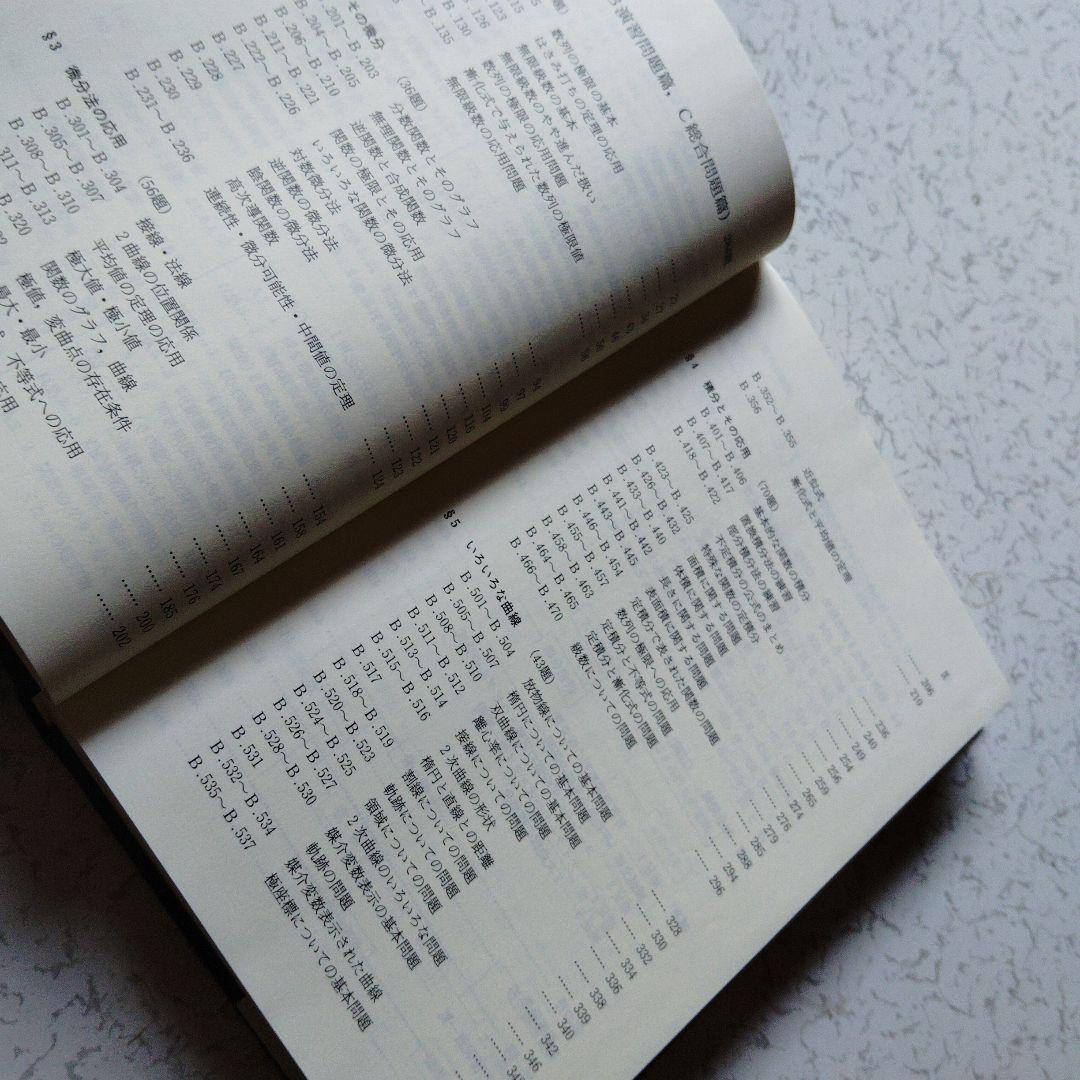 B演習問題篇，C総合問題篇)
数列の極限の基本
はさみ打ちの定理の応用
無限級数の基本
無限級数のやや進んだ扱い
数列の極限の応用問題
漸化式で与えられた数列の極限値
無限級数の応用問題
その微分 (36題)
B.201～B.203 分数関数とそのグラフ
B.204～B.205 無理関数とそのグラフ
B.206～B.210 逆関数と合成関数
B.211～B.221 関数の極限とその応用
B.222～B.226 いろいろな関数の微分法
B.227 対数微分法
B.228 逆関数の微分法
B.229 陰関数の微分法
B.230 高次導関数
B.231～B.236 連続性・微分可能性・中間値の定理
94
97
99
104
116
120
121
122
123
124
§3 微分法の応用 (56題)
B.301～B.304 接線・法線
B.305～B.307 2曲線の位置関係
B.308～B.310 平均値の定理の応用
B.311～B.313 極大値・極小値
B.320 関数のグラフ，曲線
極値，変曲点の存在条件
最大・最小
不等式への応用
154
158
161
164
167
174
176
185
200
202
B.352～B.355 近似式 …… 206
B.356 漸化式と平均値の定理 …… 210
§4 積分とその応用 (70題)
B.401～B.406 基本的な関数の積分 …… 236
B.407～B.417 置換積分法の練習 …… 240
B.418～B.422 部分積分法の練習 …… 249
不定積分の公式のまとめ …… 254
B.423～B.425 特殊な関数の定積分 …… 256
B.426～B.432 面積に関する問題 …… 259
B.433～B.440 体積に関する問題 …… 265
B.441～B.442 表面積に関する問題 …… 274
B.443～B.445 長さに関する問題 …… 276
B.446～B.454 定積分で表された関数の問題 …… 279
B.455～B.457 数列の極限への応用 …… 285
B.458～B.463 定積分と不等式の問題 …… 288
B.464～B.465 定積分と漸化式の問題 …… 294
B.466～B.470 級数についての問題 …… 296
§5 いろいろな曲線 (43題)
B.501～B.504 放物線についての基本問題 …… 328
B.505～B.507 楕円についての基本問題 …… 330
B.508～B.510 双曲線についての基本問題 …… 332
B.511～B.512 離心率についての問題 …… 334
B.513～B.514 接線についての問題 …… 336
B.515～B.516 2次曲線の形状 …… 338
B.517 楕円と直線との距離 …… 339
B.518～B.519 割線についての問題 …… 340
B.520～B.523 軌跡についての問題 …… 342
B.524～B.525 領域についての問題 …… 346
B.526～B.527 2次曲線のいろいろな問題
B.528～B.530 媒介変数表示の基本問題
B.531 軌跡の問題
B.532～B.534 媒介変数表示された曲線
B.535～B.537 極座標についての基本問題